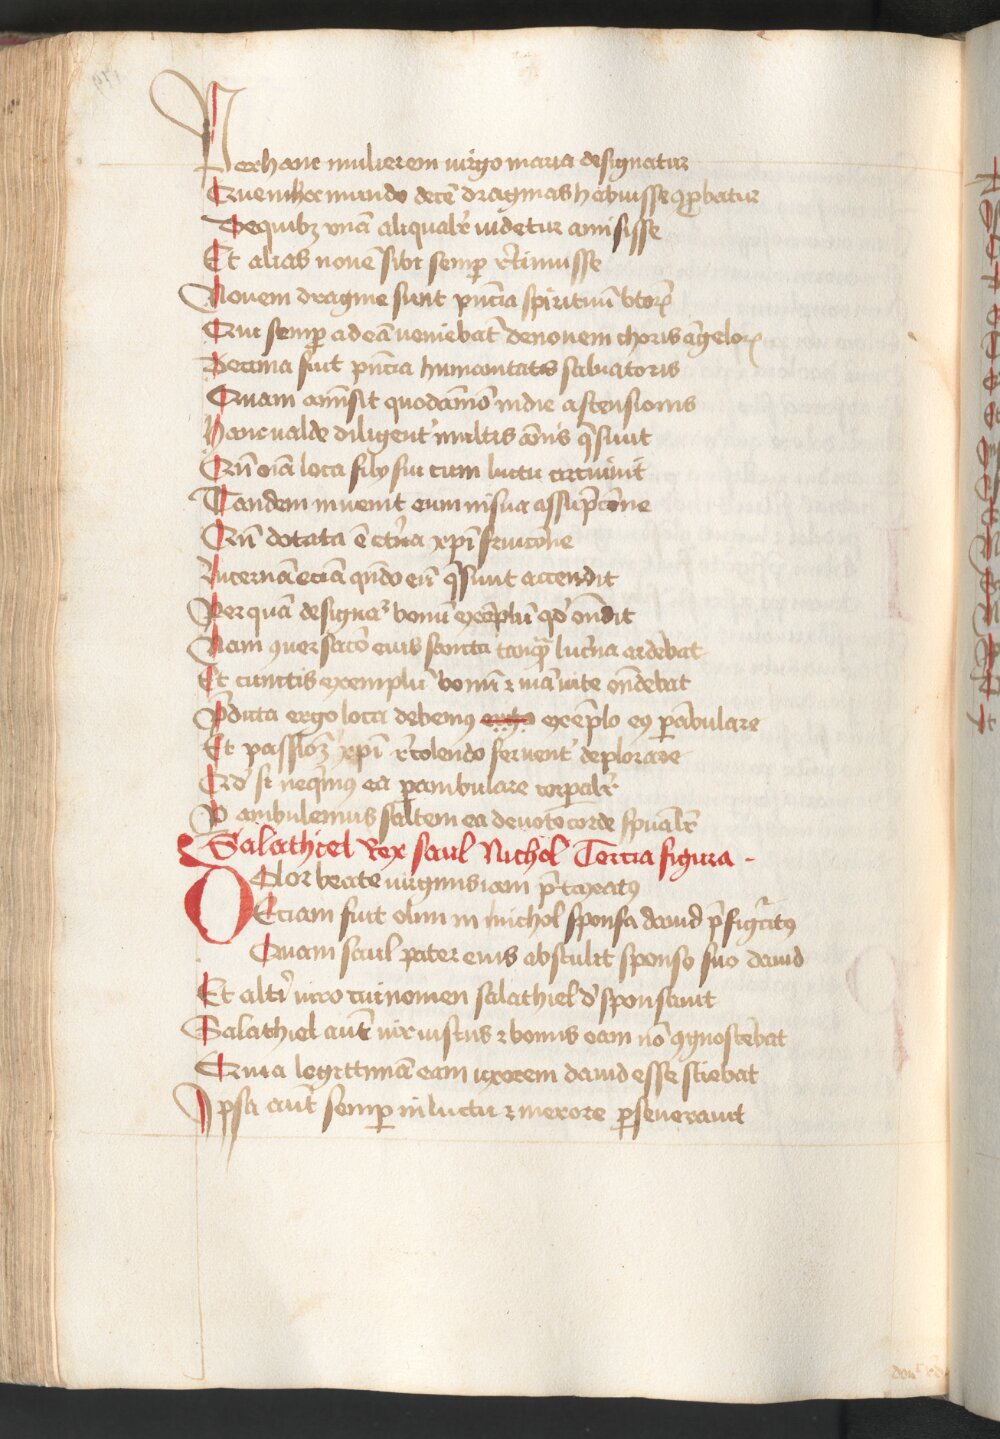 Per hanc mulierem virgo maria designatur
Que in hoc mundo decē dragmas habuisse ꝓbatur
De quibꝫ vnā aliqualr̄ videtur amisisse
Et alias nouē sibi semꝑ rētinuisse
Nouem dragme sunt pn̄cia spirituū btorꝝ
Qui semꝑ ad eā veniebāt de nouem choris āgelorꝝ
Decima fuit pn̄cia humanitatis saluatoris
Quam amisit quodāmō in die ascensionis
Hanc valde diligent᾽ multis ānis q̄siuit
Qn̄ oīa loca filij sui cum luctu circuiuit
Tandem inuenit eum in sua assūpcōne
Qn̄ dotata ē et̄na xp̄i fruicōne
Lucernā eciā qn̄do eū q̄siuit accendit
Per quā designat᾽ bonū exēplū qd̄ on̄dit
Nam ꝯuersacō eius sancta tanq̄ luc̄na ardebat
Et cunctis exemplū bonū ⁊ viā vite on̄debat
P̄dicta ergo loca debemꝰ exēplo eiꝰ ꝑābulare
Et passionē xp̄i rēcolendo feruent᾽ deplorare
Qd̄ si neq̄mꝰ ea ꝑambulare corꝑalr̄
Pambulemus saltem ea deuoto corde spūalr̄
Salathiel Rex saul Nichol Tercia figura -
Dolor beate virginis iam p̄taxatꝰ
Eciam fuit olim in michol sponsa dauid p̄figuratꝰ
Quam saul pater eius abstulit sponso suo dauid
Et alt̄i viro cui nomen salathiel d̄sponsauit
Salathiel aut̄ vir iustus ⁊ bonus eam nō ꝯgnoscebat
Quia legittimā eam vxorem dauid esse sciebat
Ipsa aut̄ semꝑ in luctu ⁊ merore ꝑseuerauit